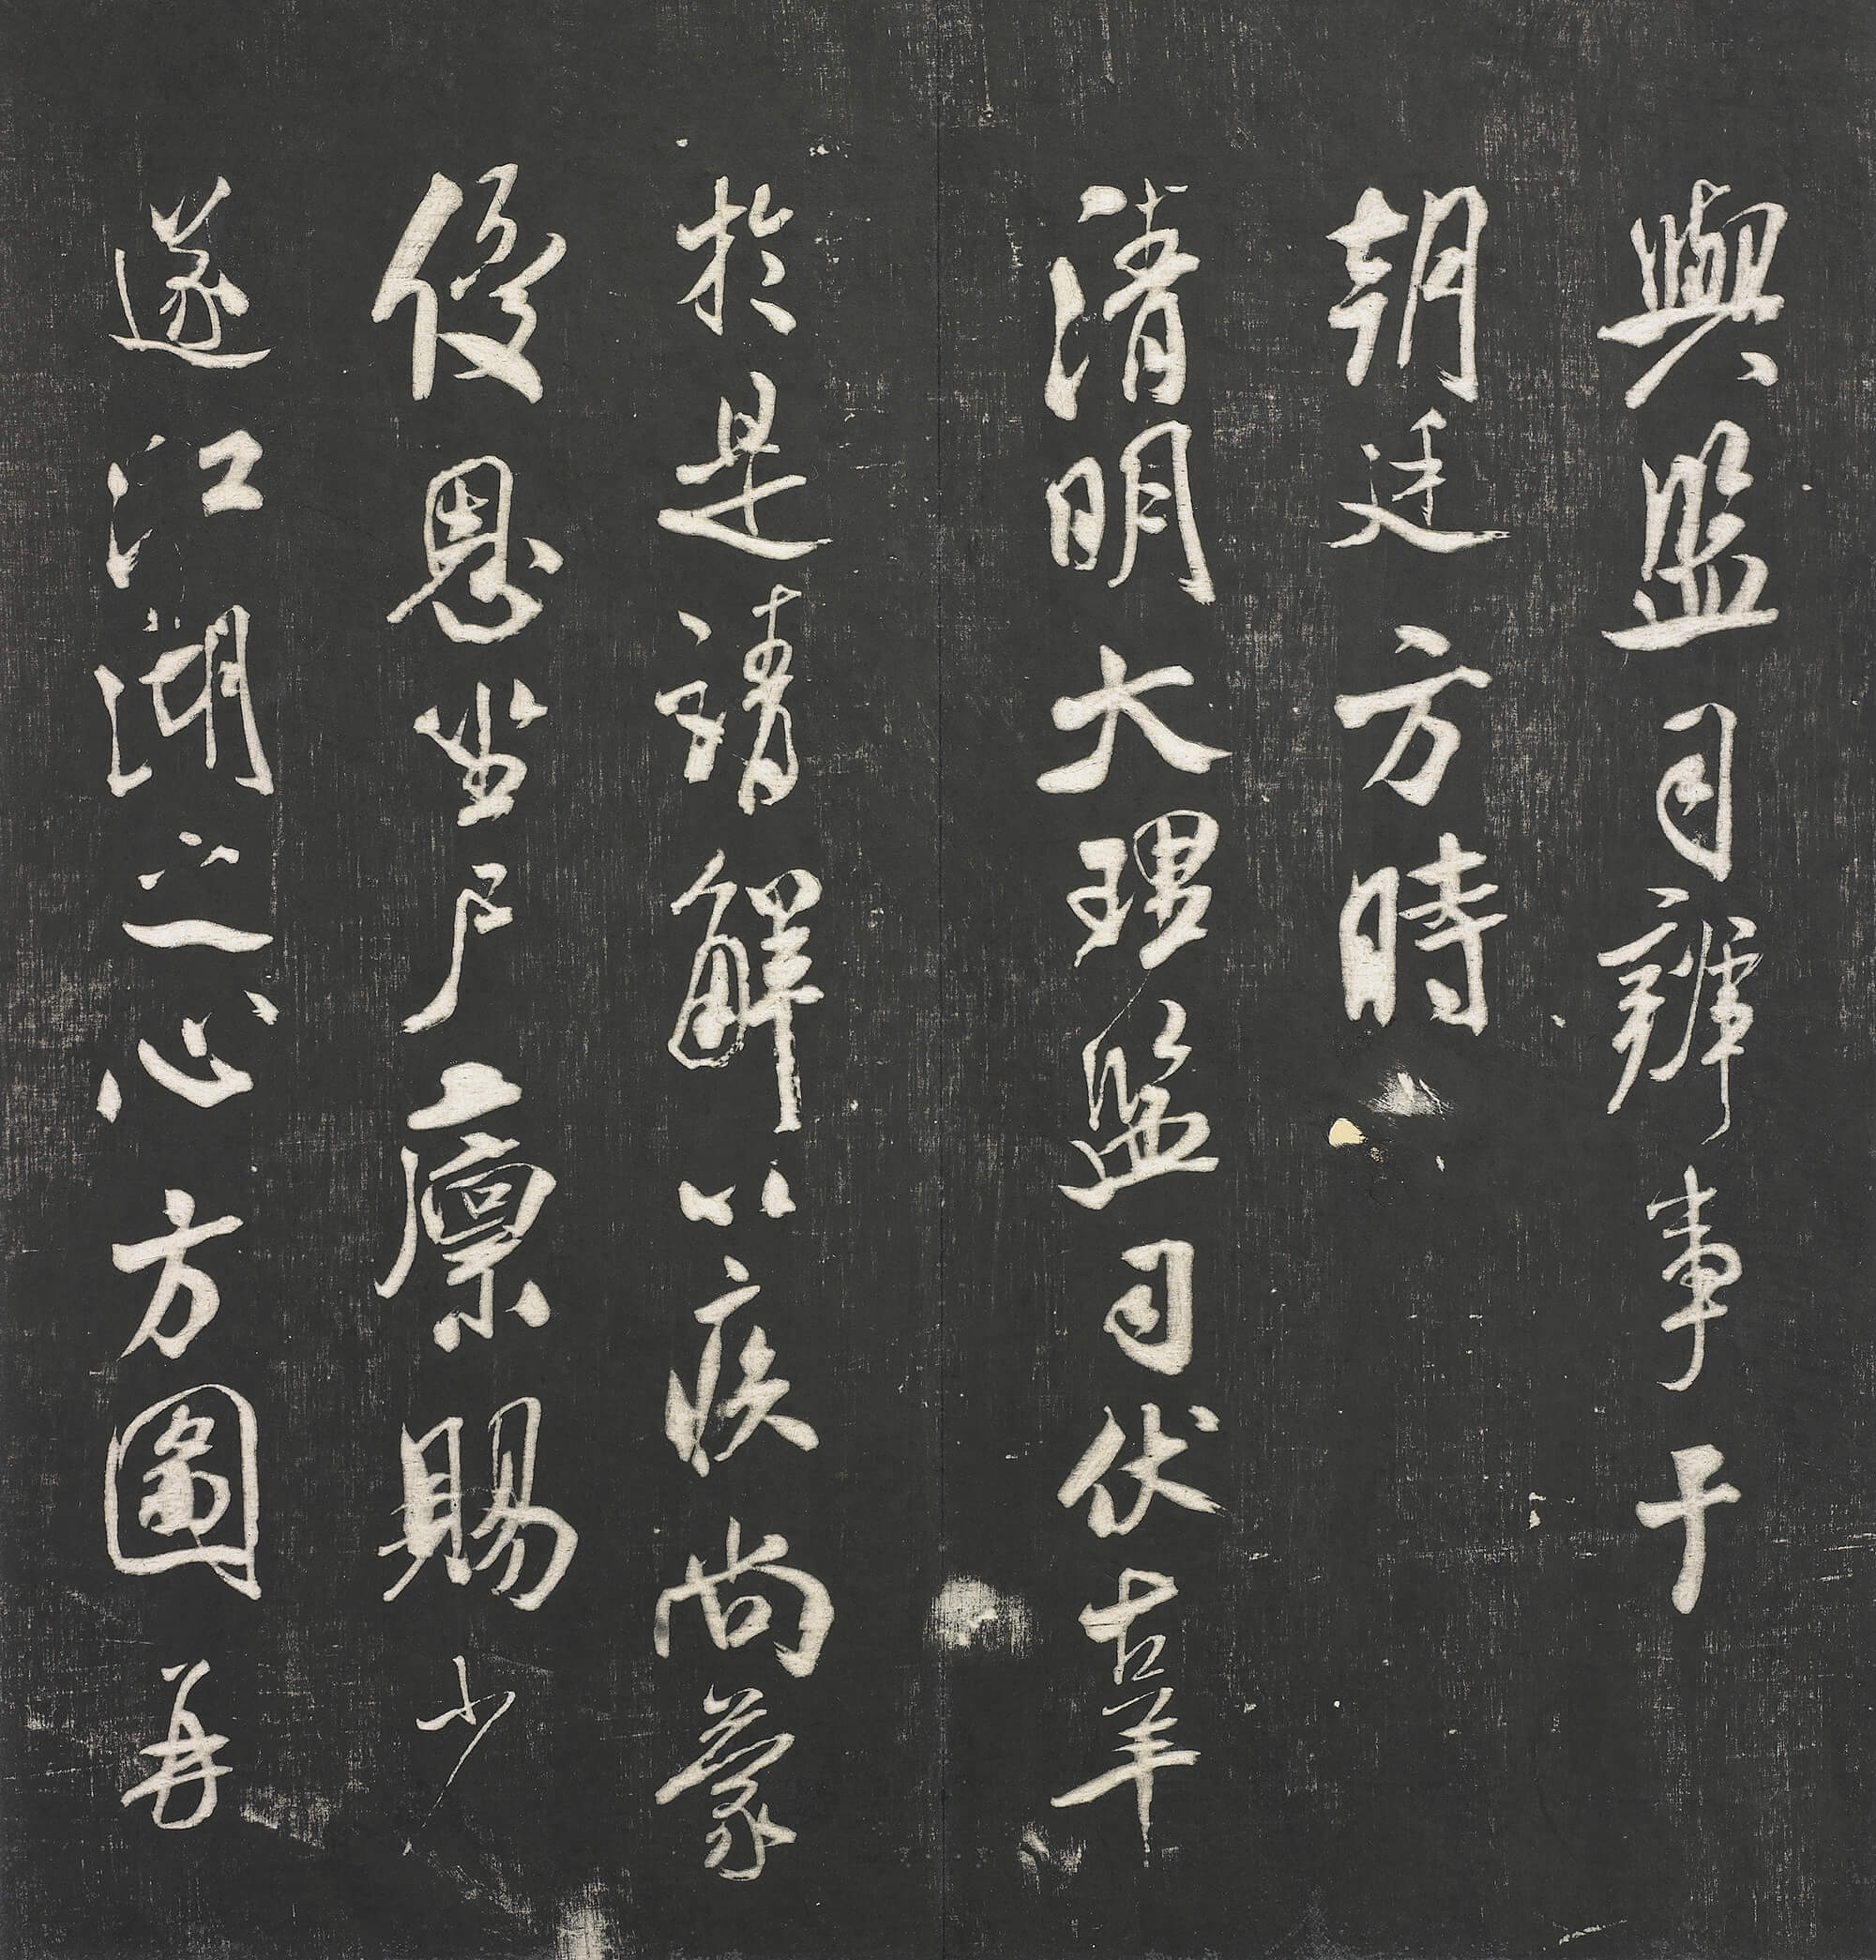 與監司辨事干
朝廷方時
清明大理監司伏辜
於是請解以疾尚蒙
優恩坐尸廩賜少
遂江湖之心方圖再